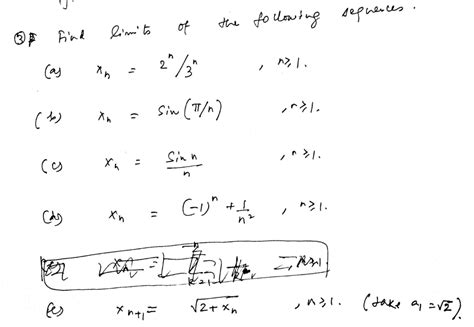 ③ Find limits of the following sequences.
(a) xₙ = 2ⁿ/3ⁿ , n≥1.
(b) xₙ = sin(π/n) , n≥1.
(c) xₙ = sin n / n , n≥1.
(d) xₙ = (-1)ⁿ + 1/n² , n≥1.
(e) xₙ₊₁ = √(2+xₙ) , n≥1. (take a₁ = √2).